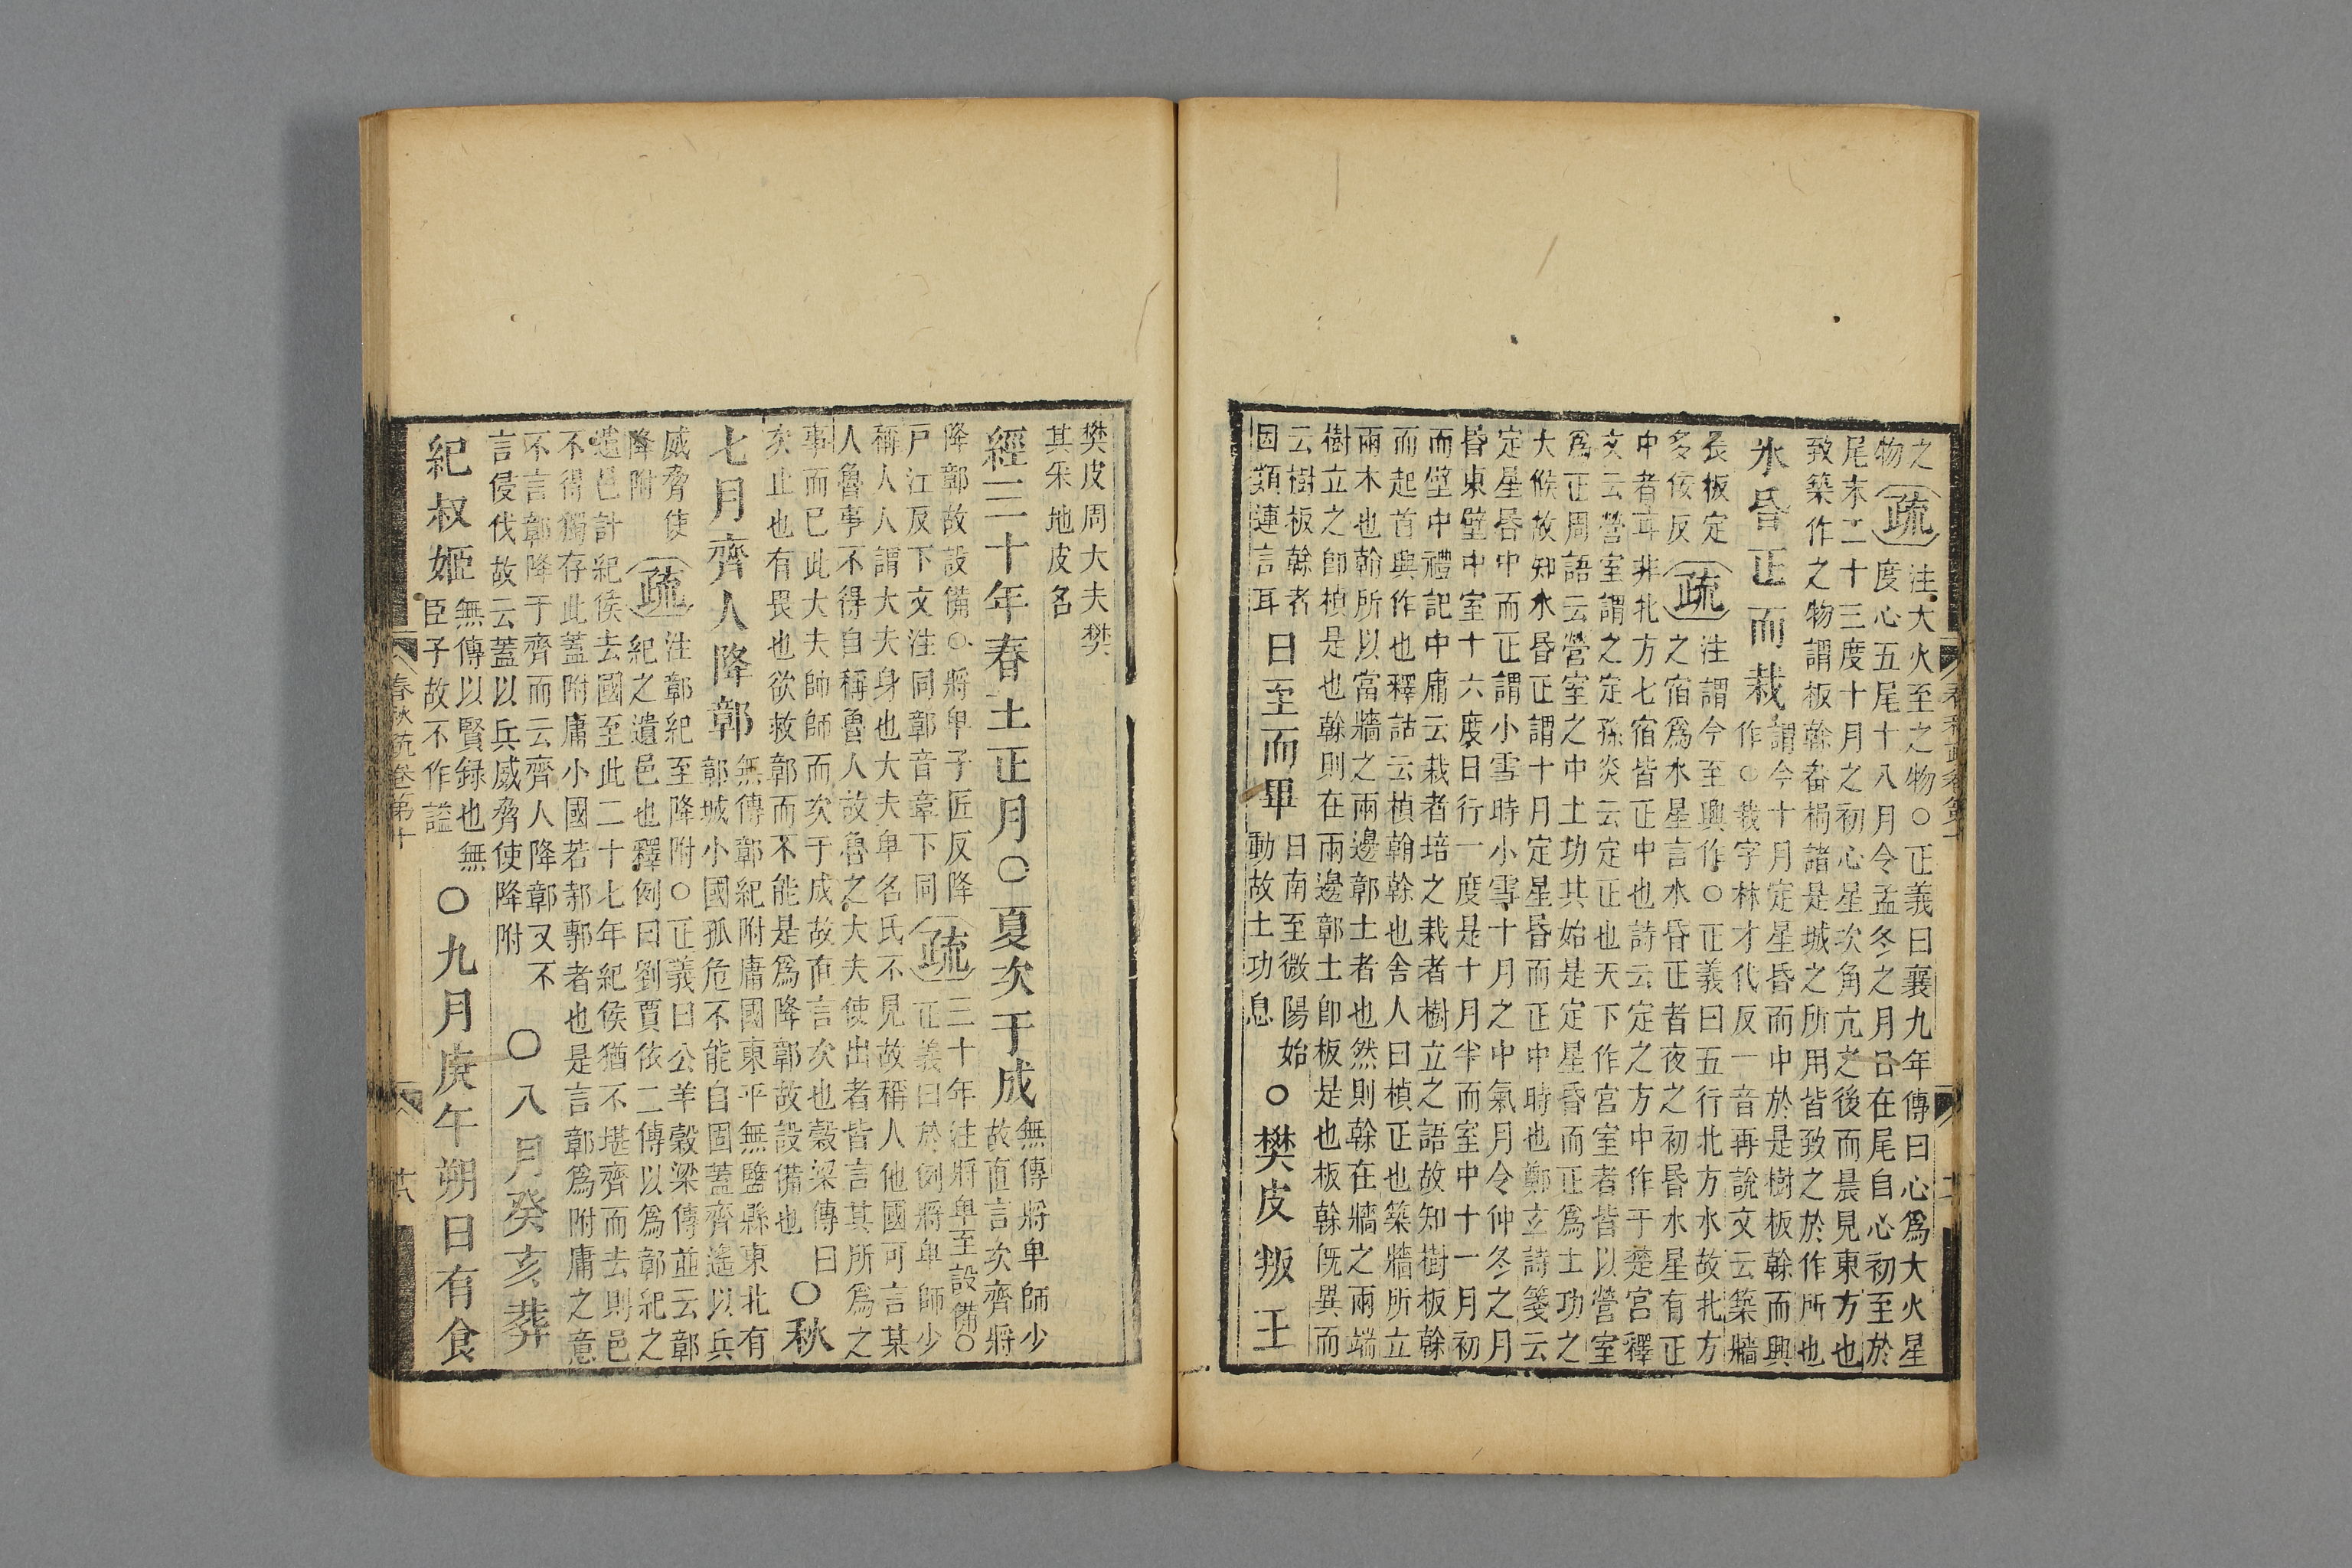 之疏注大火至之物○正義曰襄九年傳曰心爲大火星
物度心五尾十八月令孟冬之月日在尾自心初至於
尾末二十三度十月之初心星次角亢之後而晨見東方也
致築作之物謂板榦畚梮諸是城之所用皆致之於作所也
水昏正而栽謂今十月定星昏而中於是樹板榦而興
作○栽字林才代反一音再說文云築牆
長板定疏注謂今至興作○正義曰五行北方水故北方
多佞反之宿爲水星言水昏正者夜之初昏水星有正
中者耳非北方七宿皆正中也詩云定之方中作于楚宮釋
文云營室謂之定孫炎云定正也天下作宮室者皆以營室
爲正周語云營室之中土功其始是定星昏而正爲土功之
大候故知水昏正謂十月定星昏而正中時也鄭玄詩箋云
定星昏中而正謂小雪時小雪十月之中氣月令仲冬之月
昏東壁中室十六度日行一度是十月半而室中十一月初
而壁中禮記中庸云栽者培之栽者樹立之語故知樹板榦
而起首興作也釋詁云楨翰榦也舍人曰楨正也築牆所立
兩木也榦所以當牆之兩邊鄣土者也然則榦在牆之兩端
樹立之即楨是也榦則在兩邊鄣土即板是也板榦旣異而
云樹板榦者
因類連言耳
日至而畢
日南至微陽始
動故土功息
○樊皮叛王
樊皮周大夫樊
其采地皮名
經三十年春王正月○夏次于成
無傳將卑師少
故直言次齊將
降鄣故設備○將卑子匠反降
戸江反下文注同鄣音章下同
疏
三十年注將卑至設備○
正義曰於例將卑師少
稱人人謂大夫身也大夫卑名氏不見故稱人他國可言某
人魯事不得自稱魯人故魯之大夫使出者皆言其所爲之
事而已此大夫帥師而次于成故直言次也穀梁傳曰
次止也有畏也欲救鄣而不能是爲降鄣故設備也
○秋
七月齊人降鄣
無傳鄣紀附庸國東平無鹽縣東北有
鄣城小國孤危不能自固蓋齊遙以兵
威脅使
降附
疏
注鄣紀至降附○正義曰公羊穀梁傳並云鄣
紀之遺邑也釋例曰劉賈依二傳以爲鄣紀之
遺邑計紀侯去國至此二十七年紀侯猶不堪齊而去則邑
不得獨存此蓋附庸小國若邿鄅者也是言鄣爲附庸之意
不言鄣降于齊而云齊人降鄣又不
言侵伐故云蓋以兵威脅使降附
○八月癸亥葬
紀叔姬
無傳以賢録也無
臣子故不作謚
○九月庚午朔日有食
春秋疏卷第十